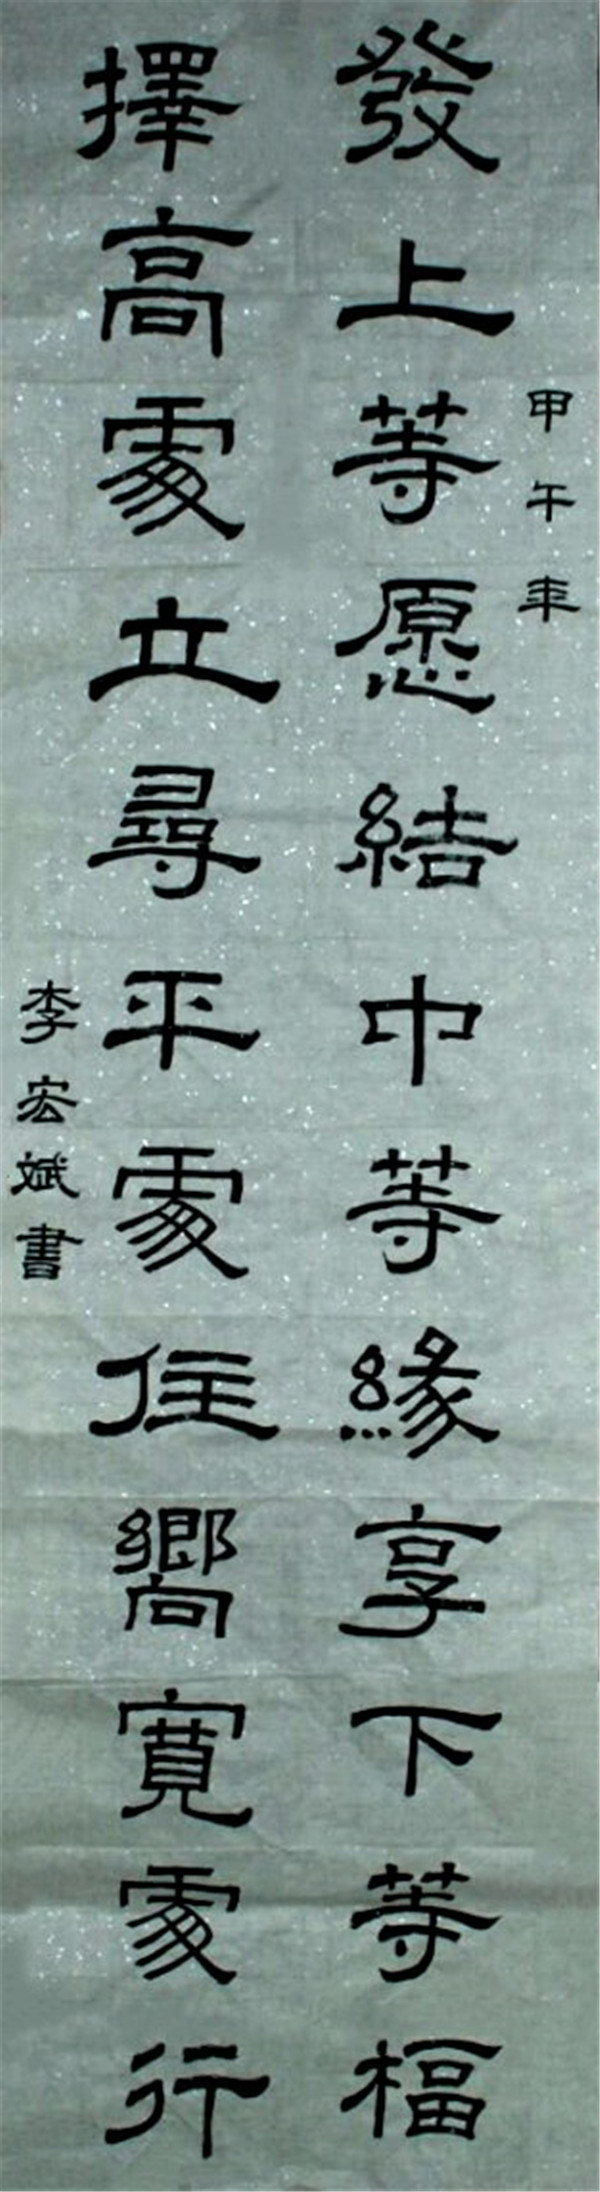 甲午年
發上等愿結中等緣享下等福
擇高處立尋平處住嚮寬處行
李宏斌書